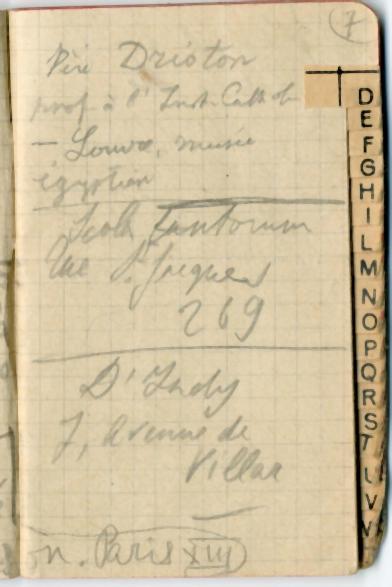 7
Père Drioton
prof. à l'Inst. Cathol.
– Louvre, musée
égyptien
Scola Cantorum
Rue St Jacques
269
D'Indy
7, Avenue de
Villar
on. Paris XIII
D
E
F
G
H
I
L
M
N
O
P
Q
R
S
T
U
V